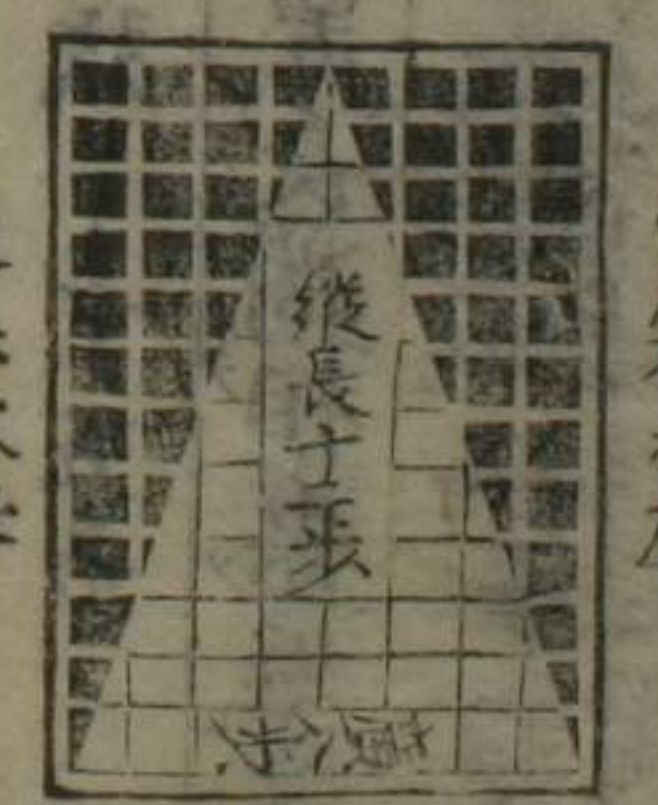 縱長十二步
廣八步